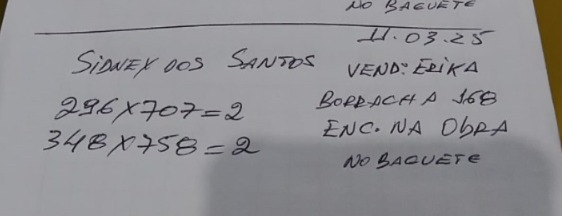 NO BAGUETE
11.03.25
SIDNEX DOS SANTOS VEND: ERIKA
296X707=2 BORRACHA 168
348X758=2 ENC. NA ObRA
NO BAGUETE